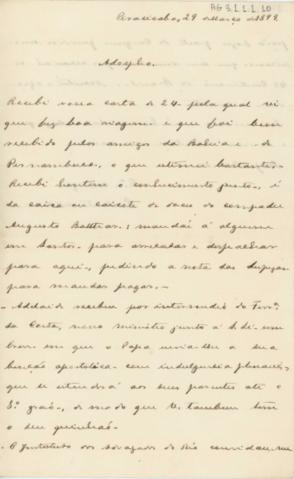 AG 3.1.1.1.10
Piracicaba, 29 de Março de 1899.
Adolpho.
Recebi vossa carta de 24, pela qual vi
que fez boa viagem e que foi bem
recebido pelos amigos da Bahia e de
Pernambuco, o que estimei bastante.
Recebi hontem o conhecimento junto, é
da caixa ou caixote de doces do compadre
Augusto; mandai á alguem
em Santos, para arrecadar e despachar
para aqui, pedindo a nota das despezas
para mandar pagar.
- Adelaide recebeu por intermedio do
da Costa, nosso ministro junto á S. Sé, um
em que o Papa envia-lhe a sua
benção apostolica com indulgencia plenaria,
que se estenderá aos seus parentes até o
3º grao, de modo que V. tambem tem
o seu quinhão.
- O Instituto dos Advogados do Rio convidou-me